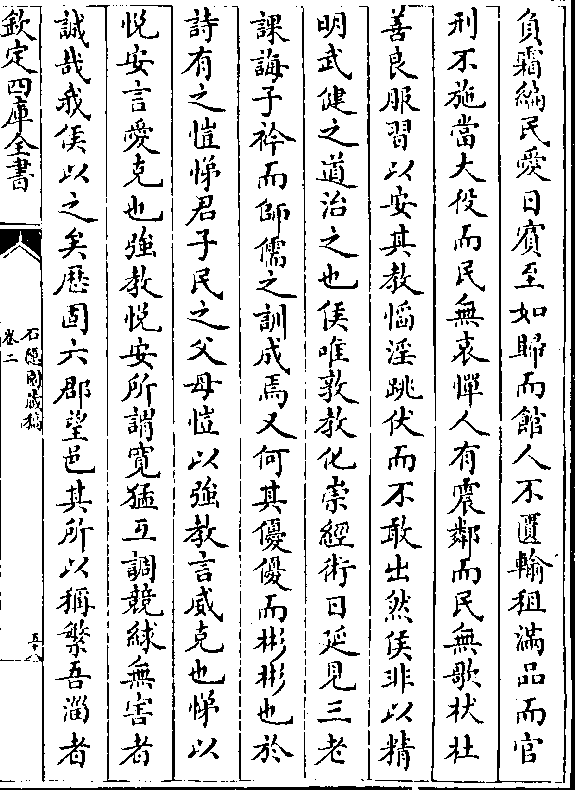 負霜編民愛日賓至如歸而館人不匱輸租滿品而官
刑不施當大役而民無哀憚人有震鄰而民無歌杕杜
善良服習以安其教慆淫跳伏而不敢出然侯非以精
明武健之道治之也侯唯敦教化崇經術日延見三老
課誨子衿而師儒之訓成焉又何其優優而彬彬也於
詩有之愷悌君子民之父母愷以強教言威克也悌以
悅安言愛克也強教悅安所謂寬猛互調競絿無害者
誠哉我侯以之矣歷固六郡望邑其所以稱繁吾淄者
欽定四庫全書
石隱園藏稿
卷二
五十八